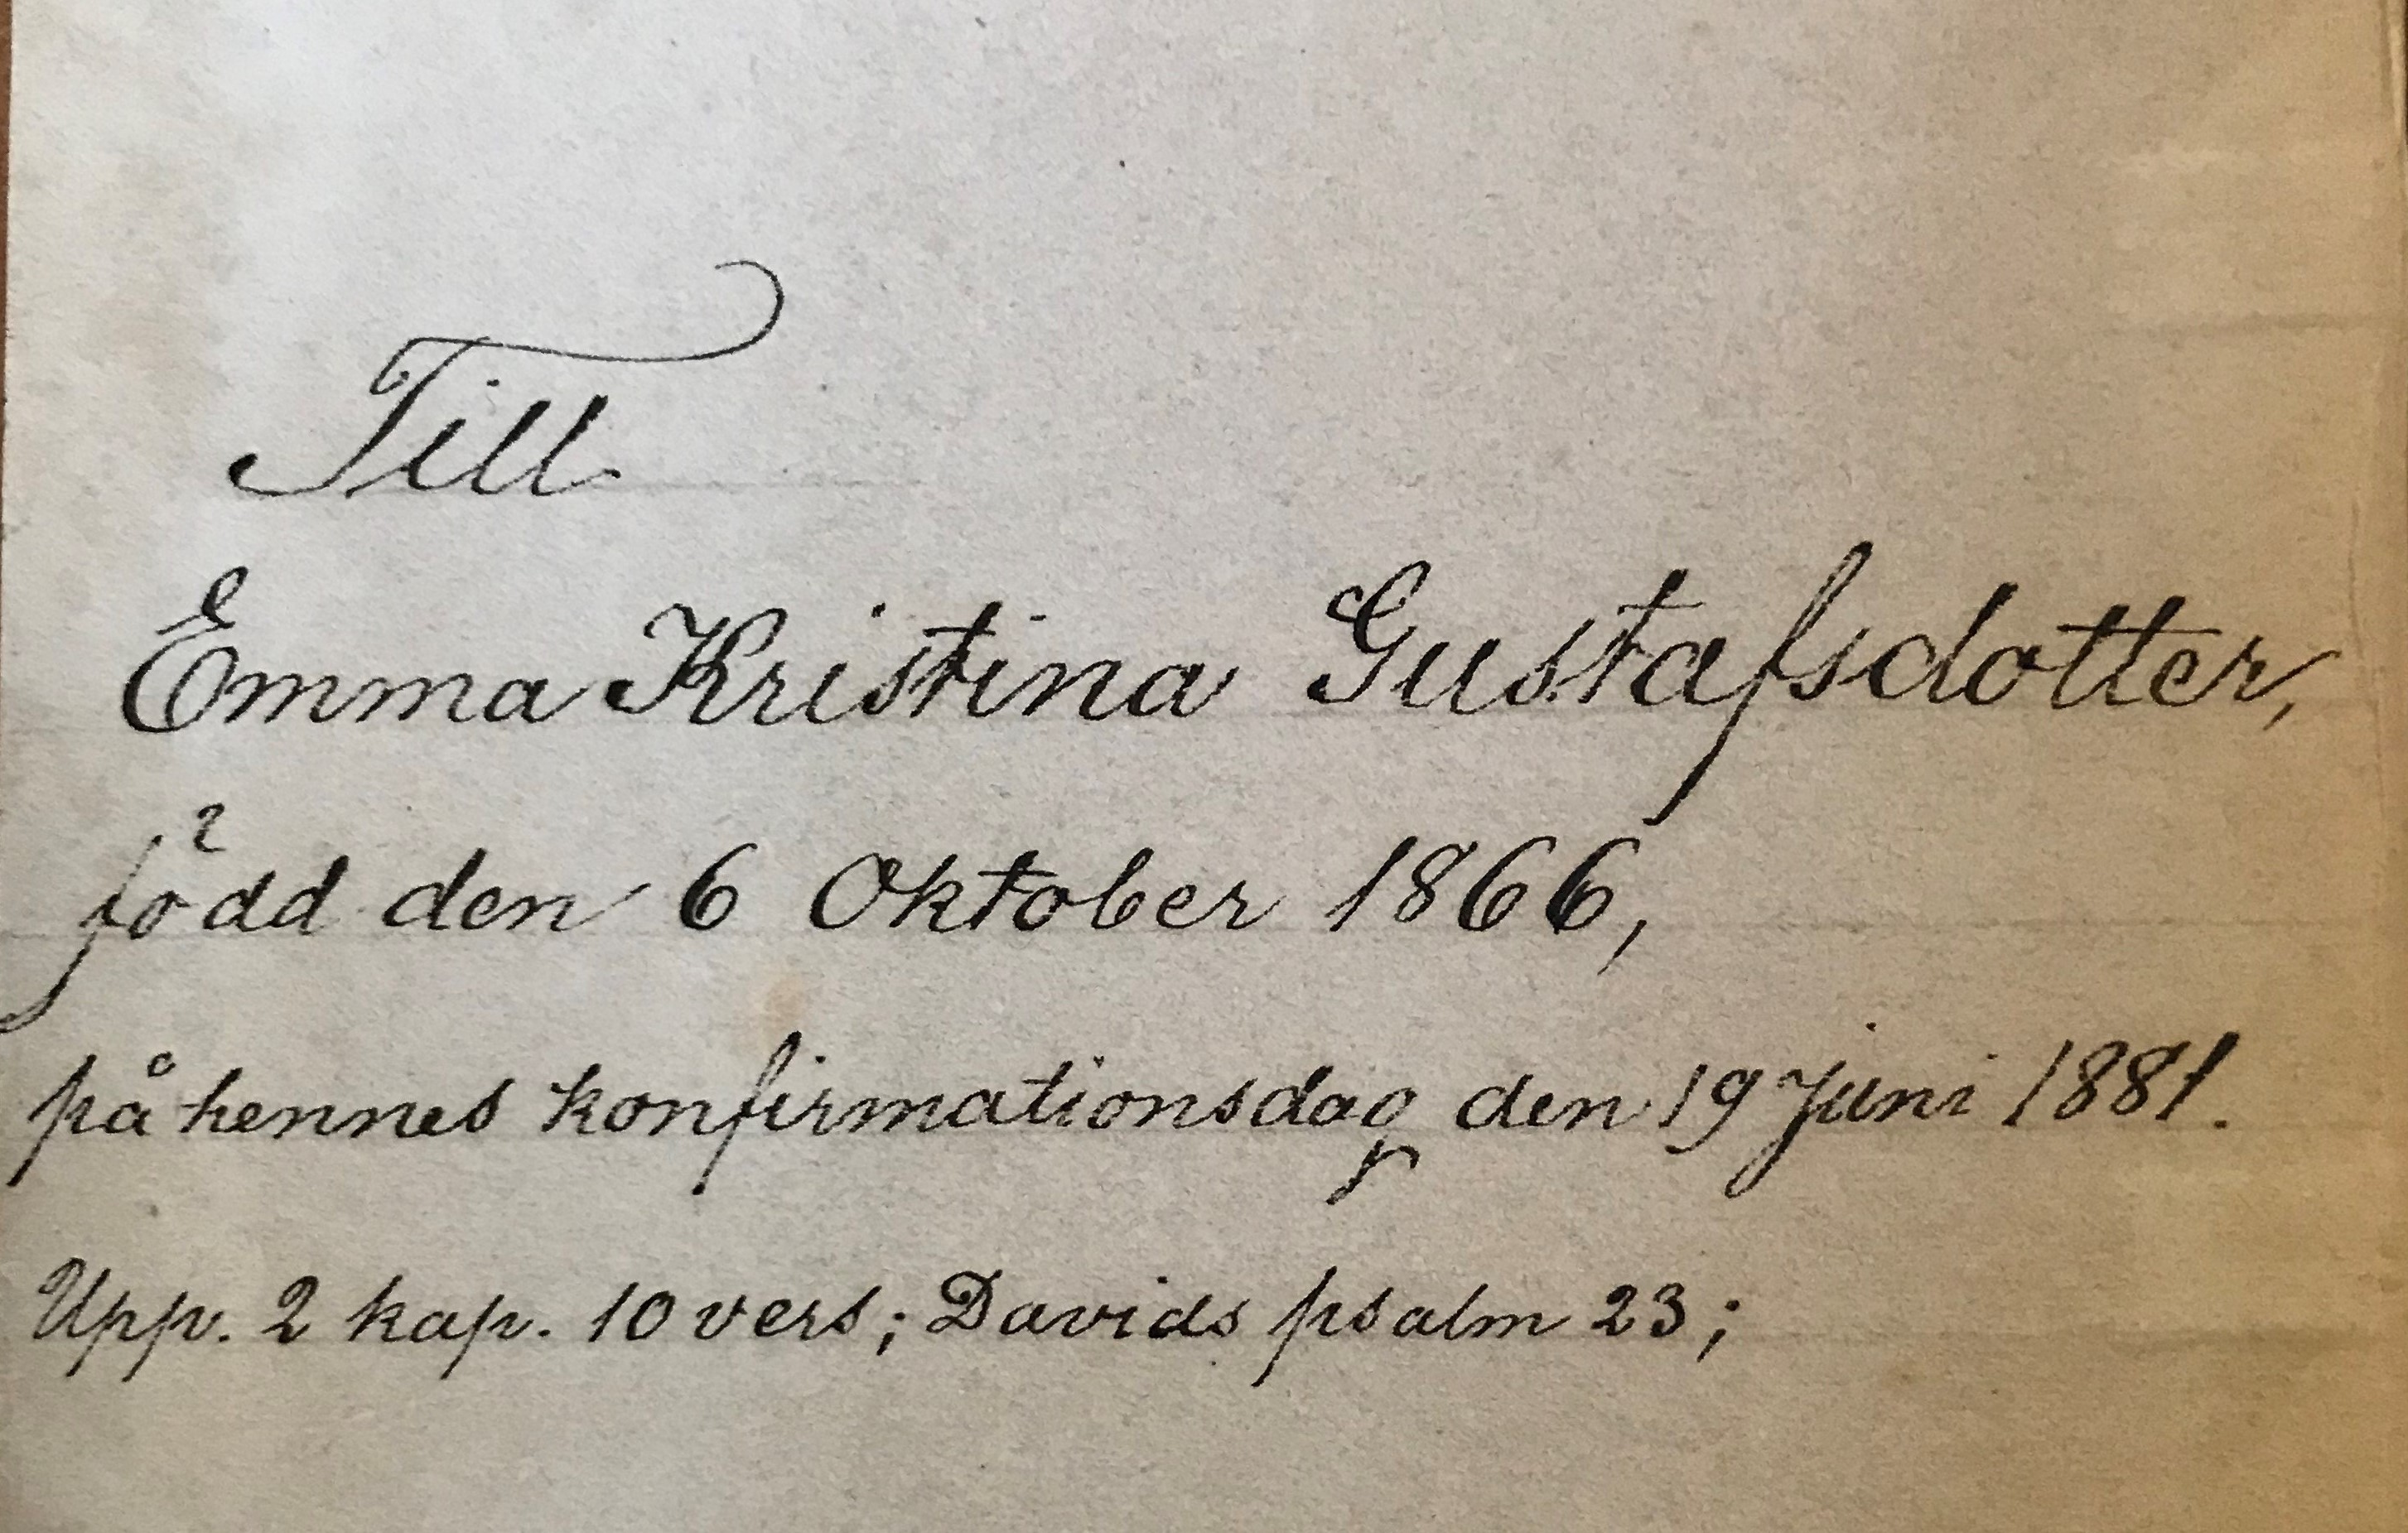 Till
Emma Kristina Gustafsdotter,
född den 6 Oktober 1866,
på hennes konfirmationsdag den 19 Juni 1881.
Upp. 2 kap. 10 vers; Davids psalm 23;